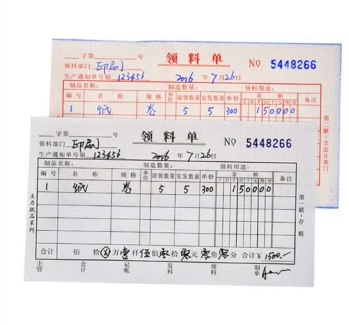 字第 号
领料单
领料部门 印刷 № 5448266
生产通知单号别 123456 2016 年 7 月 26 日
制品名称： 制造数量： 领料用途：
编号 名称 规格 单位 请领数量 实发数量 单价 金额 备注
1 纸 卷 5 5 300 150000
第二联·交会计部门
字第 号
领料单
领料部门 印刷 № 5448266
生产通知单号别 123456 2016 年 7 月 26 日
制品名称： 制造数量： 领料用途：
编号 名称 规格 单位 请领数量 实发数量 单价 金额 备注
1 纸 卷 5 5 300 150000
主力纸品系列
第一联·存根
合计 佰 拾 万 壹 仟 伍 佰 零 拾 零 元 零 角 零 分 合计 ¥ 1500.-
主管 会计 记账 发料 领料 制单